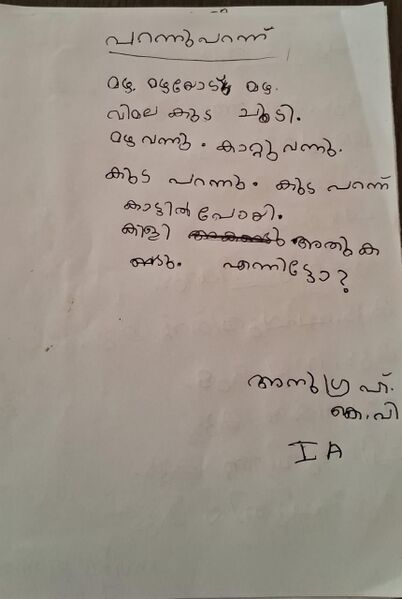 പറന്നുപറന്ന്
മഴ. മഴയോട് മഴ.
വിമല കുട ചൂടി.
മഴ വന്നു. കാറ്റു വന്നു.
കുട പറന്നു. കുട പറന്ന്
കാട്ടിൽ പോയി.
കിളി അതു ക
ണ്ടു. എന്നിട്ടോ?
അനുഗ്രഹ്.
കെ.വി
I A